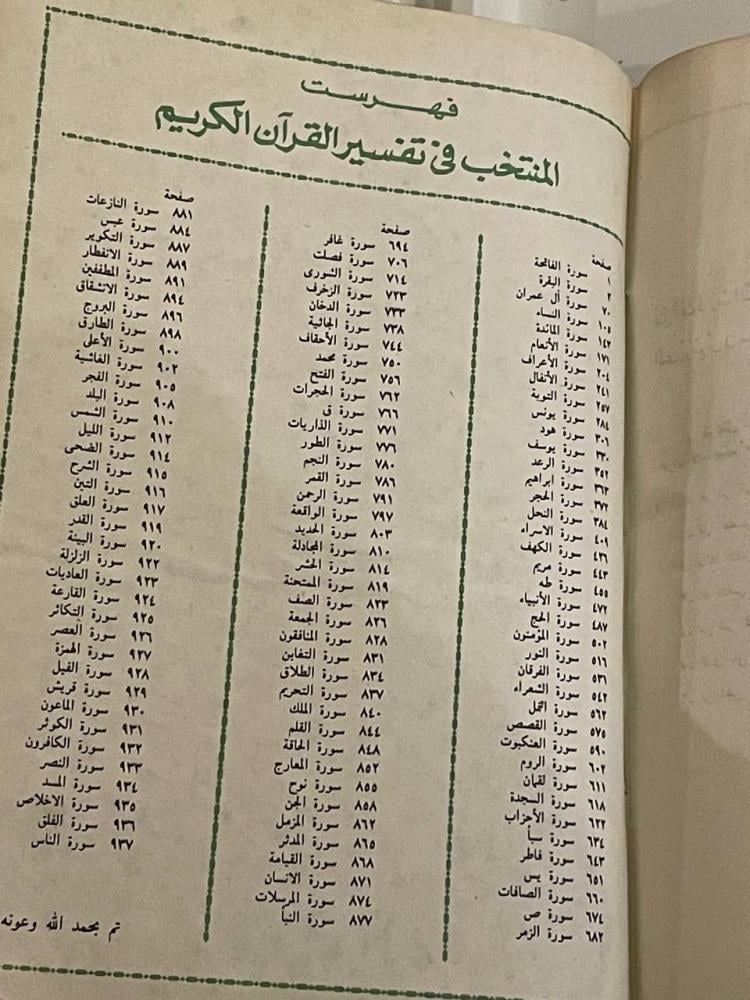 فهرست
المنتخب في تفسير القرآن الكريم
صفحة
١ سورة الفاتحة
٢ سورة البقرة
٧٠ سورة آل عمران
١٠٥ سورة النساء
١٤٢ سورة المائدة
١٧١ سورة الأنعام
٢٠٤ سورة الأعراف
٢٤١ سورة الأنفال
٢٥٧ سورة التوبة
٢٨٤ سورة يونس
٣٠٦ سورة هود
٣٣٠ سورة يوسف
٣٥٢ سورة الرعد
٣٦٣ سورة ابراهيم
٣٧٢ سورة الحجر
٣٨٤ سورة النحل
٤٠٩ سورة الاسراء
٤٢٦ سورة الكهف
٤٤٣ سورة مريم
٤٥٥ سورة طه
٤٧٢ سورة الأنبياء
٤٨٧ سورة الحج
٥٠٢ سورة المؤمنون
٥١٦ سورة النور
٥٣١ سورة الفرقان
٥٤٢ سورة الشعراء
٥٦٢ سورة النمل
٥٧٥ سورة القصص
٥٩٠ سورة العنكبوت
٦٠٢ سورة الروم
٦١١ سورة لقمان
٦١٨ سورة السجدة
٦٢٢ سورة الأحزاب
٦٣٤ سورة سبأ
٦٤٣ سورة فاطر
٦٥١ سورة يس
٦٦٠ سورة الصافات
٦٧٤ سورة ص
٦٨٢ سورة الزمر
صفحة
٦٩٤ سورة غافر
٧٠٦ سورة فصلت
٧١٤ سورة الشورى
٧٢٣ سورة الزخرف
٧٣٣ سورة الدخان
٧٣٨ سورة الجاثية
٧٤٤ سورة الأحقاف
٧٥٠ سورة محمد
٧٥٦ سورة الفتح
٧٦٢ سورة الحجرات
٧٦٦ سورة ق
٧٧١ سورة الذاريات
٧٧٦ سورة الطور
٧٨٠ سورة النجم
٧٨٦ سورة القمر
٧٩١ سورة الرحمن
٧٩٧ سورة الواقعة
٨٠٣ سورة الحديد
٨١٠ سورة المجادلة
٨١٤ سورة الحشر
٨١٩ سورة الممتحنة
٨٢٣ سورة الصف
٨٢٦ سورة الجمعة
٨٢٨ سورة المنافقون
٨٣١ سورة التغابن
٨٣٤ سورة الطلاق
٨٣٧ سورة التحريم
٨٤٠ سورة الملك
٨٤٤ سورة القلم
٨٤٨ سورة الحاقة
٨٥٢ سورة المعارج
٨٥٥ سورة نوح
٨٥٨ سورة الجن
٨٦٢ سورة المزمل
٨٦٥ سورة المدثر
٨٦٨ سورة القيامة
٨٧١ سورة الانسان
٨٧٤ سورة المرسلات
٨٧٧ سورة النبأ
صفحة
٨٨١ سورة النازعات
٨٨٤ سورة عبس
٨٨٧ سورة التكوير
٨٨٩ سورة الانفطار
٨٩١ سورة المطففين
٨٩٤ سورة الانشقاق
٨٩٦ سورة البروج
٨٩٨ سورة الطارق
٩٠٠ سورة الأعلى
٩٠٢ سورة الغاشية
٩٠٥ سورة الفجر
٩٠٨ سورة البلد
٩١٠ سورة الشمس
٩١٢ سورة الليل
٩١٤ سورة الضحى
٩١٥ سورة الشرح
٩١٦ سورة التين
٩١٧ سورة العلق
٩١٩ سورة القدر
٩٢٠ سورة البينة
٩٢٢ سورة الزلزلة
٩٢٣ سورة العاديات
٩٢٤ سورة القارعة
٩٢٥ سورة التكاثر
٩٢٦ سورة العصر
٩٢٧ سورة الهمزة
٩٢٨ سورة الفيل
٩٢٩ سورة قريش
٩٣٠ سورة الماعون
٩٣١ سورة الكوثر
٩٣٢ سورة الكافرون
٩٣٣ سورة النصر
٩٣٤ سورة المسد
٩٣٥ سورة الاخلاص
٩٣٦ سورة الفلق
٩٣٧ سورة الناس
تم بحمد الله وعونه